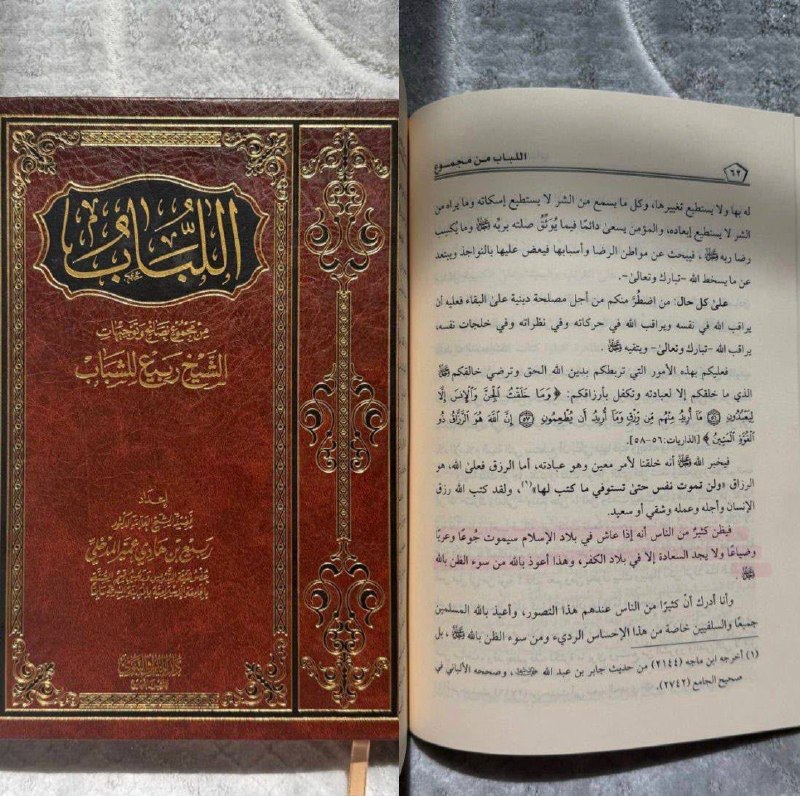 اللباب
من مجموع نصائح وتوجيهات
الشيخ ربيع للشباب
إعداد
ربيع بن هادي عمير المدخلي
اللباب من مجموع
٦٢
له بها ولا يستطيع تغييرها، وكل ما يسمع من الشر لا يستطيع إسكاته وما يراه من
الشر لا يستطيع إبعاده، والمؤمن يسعىٰ دائمًا فيما يُوَثِّقُ صلته بربِّه ﷺ وما يُكسب
رضا ربه ﷺ، فيبحث عن مواطن الرضا وأسبابها فيعض عليها بالنواجذ ويبتعد
عن ما يسخط الله -تبارك وتعالىٰ-.
علىٰ كل حال: من اضطُرَّ منكم من أجل مصلحة دينية علىٰ البقاء فعليه أن
يراقب الله في نفسه ويراقب الله في حركاته وفي نظراته وفي خلجات نفسه،
يراقب الله -تبارك وتعالىٰ- ويتقيه ﷺ.
فعليكم بهذه الأمور التي تربطكم بدين الله الحق وترضي خالقكم ﷺ
الذي ما خلقكم إلا لعبادته وتكفل بأرزاقكم: ﴿ وَمَا خَلَقْتُ ٱلْجِنَّ وَٱلْإِنسَ إِلَّا
لِيَعْبُدُونِ ۝٥٦ مَآ أُرِيدُ مِنْهُم مِّن رِّزْقٍ وَمَآ أُرِيدُ أَن يُطْعِمُونِ ۝٥٧ إِنَّ ٱللَّهَ هُوَ ٱلرَّزَّاقُ ذُو
ٱلْقُوَّةِ ٱلْمَتِينُ ﴾ [الذاريات:٥٦-٥٨].
فيخبر الله ﷺ أنه خلقنا لأمر معين وهو عبادته، أما الرزق فعلىٰ الله، هو
الرزاق «ولن تموت نفس حتىٰ تستوفي ما كتب لها»(١)، ولقد كتب الله رزق
الإنسان وأجله وعمله وشقي أو سعيد.
فيظن كثيرٌ من الناس أنه إذا عاش في بلاد الإسلام سيموت جُوعًا وعريًا
وضياعًا ولا يجد السعادة إلا في بلاد الكفر، وهذا أعوذ بالله من سوء الظن بالله
ﷺ.
وأنا أدرك أنّ كثيرًا من الناس عندهم هذا التصور، وأعيذ بالله المسلمين
جميعًا والسلفيين خاصة من هذا الإحساس الرديء ومن سوء الظن بالله ﷺ، بل
(١) أخرجه ابن ماجه (٢١٤٤) من حديث جابر بن عبد الله، وصححه الألباني في
صحيح الجامع (٢٧٤٢).